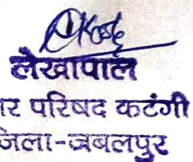 लेखापाल
र परिषद कटंगी
जिला-जबलपुर